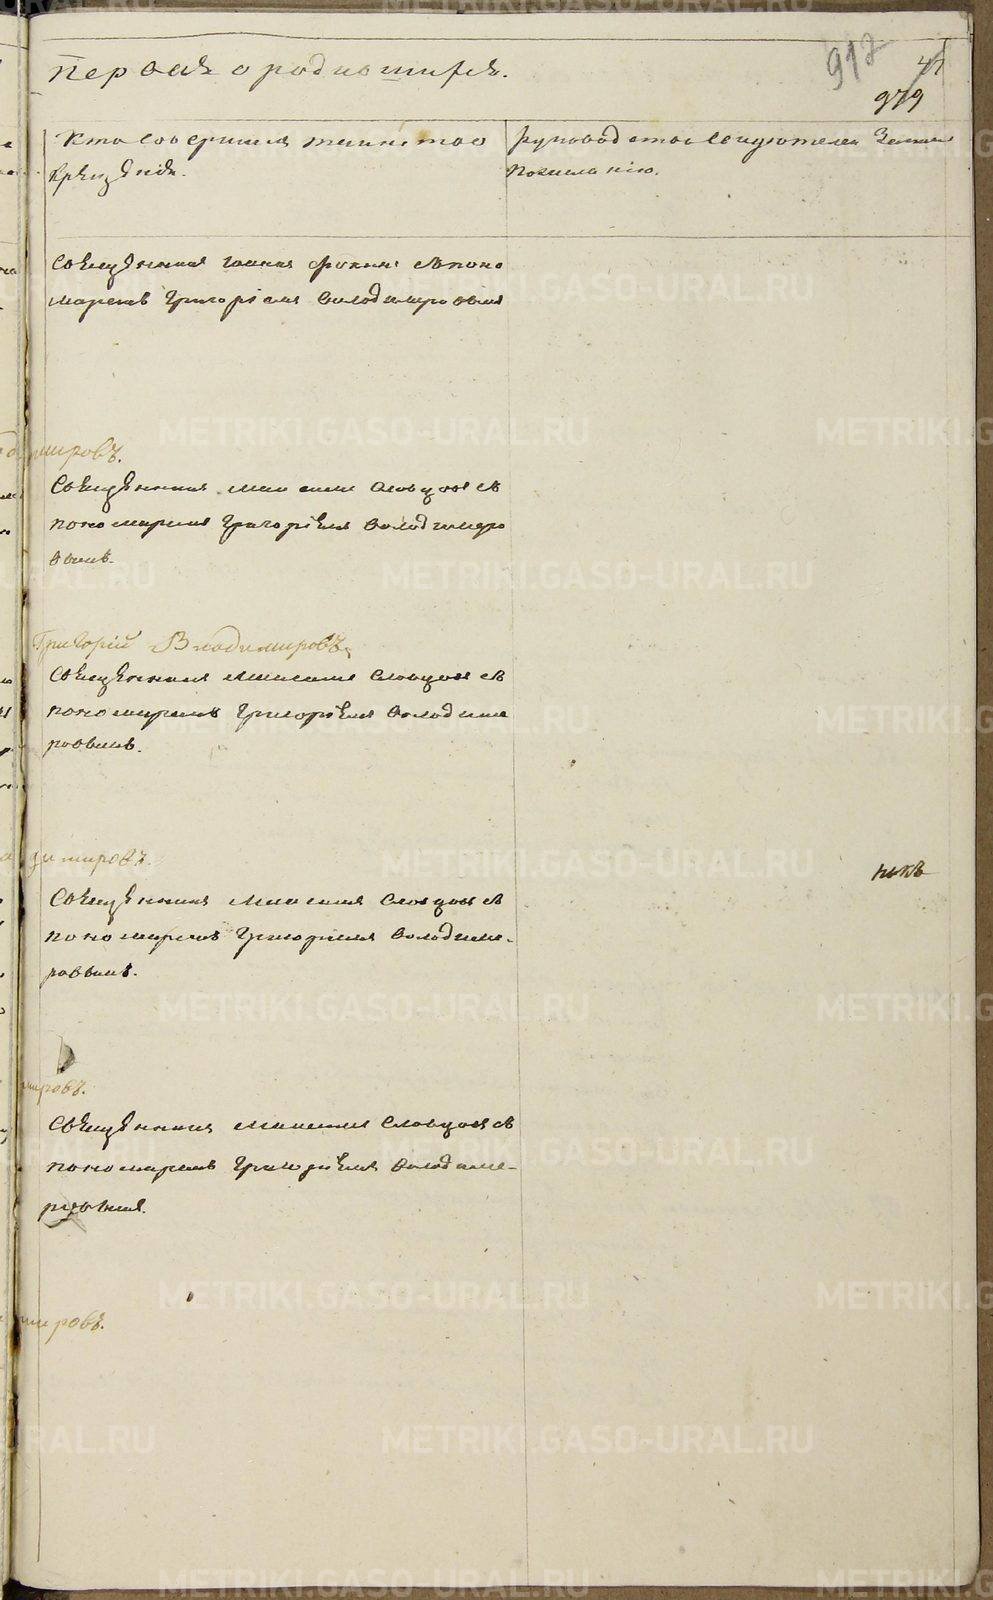 первая о родившихся.
912
41
979
Кто совершил таинство
крещения.
Рукоприкладство свидетелей записи
по желанию.
Священник Иоанн Фокин с поно
марем Григорием Володимировым
мировъ.
Священник Михаил Словцов с
пономарем Григорием Володимиро
вым.
Григорій Владимировъ
Священник Михаил Словцов с
пономарем Григорием Володими
ровым.
димировъ.
Священник Михаил Словцов с
пономарем Григорием Володими-
ровым.
мировъ.
Священник Михаил Словцов с
пономарем Григорием Володими-
ровым.
мировъ.
METRIKI.GASO-URAL.RU